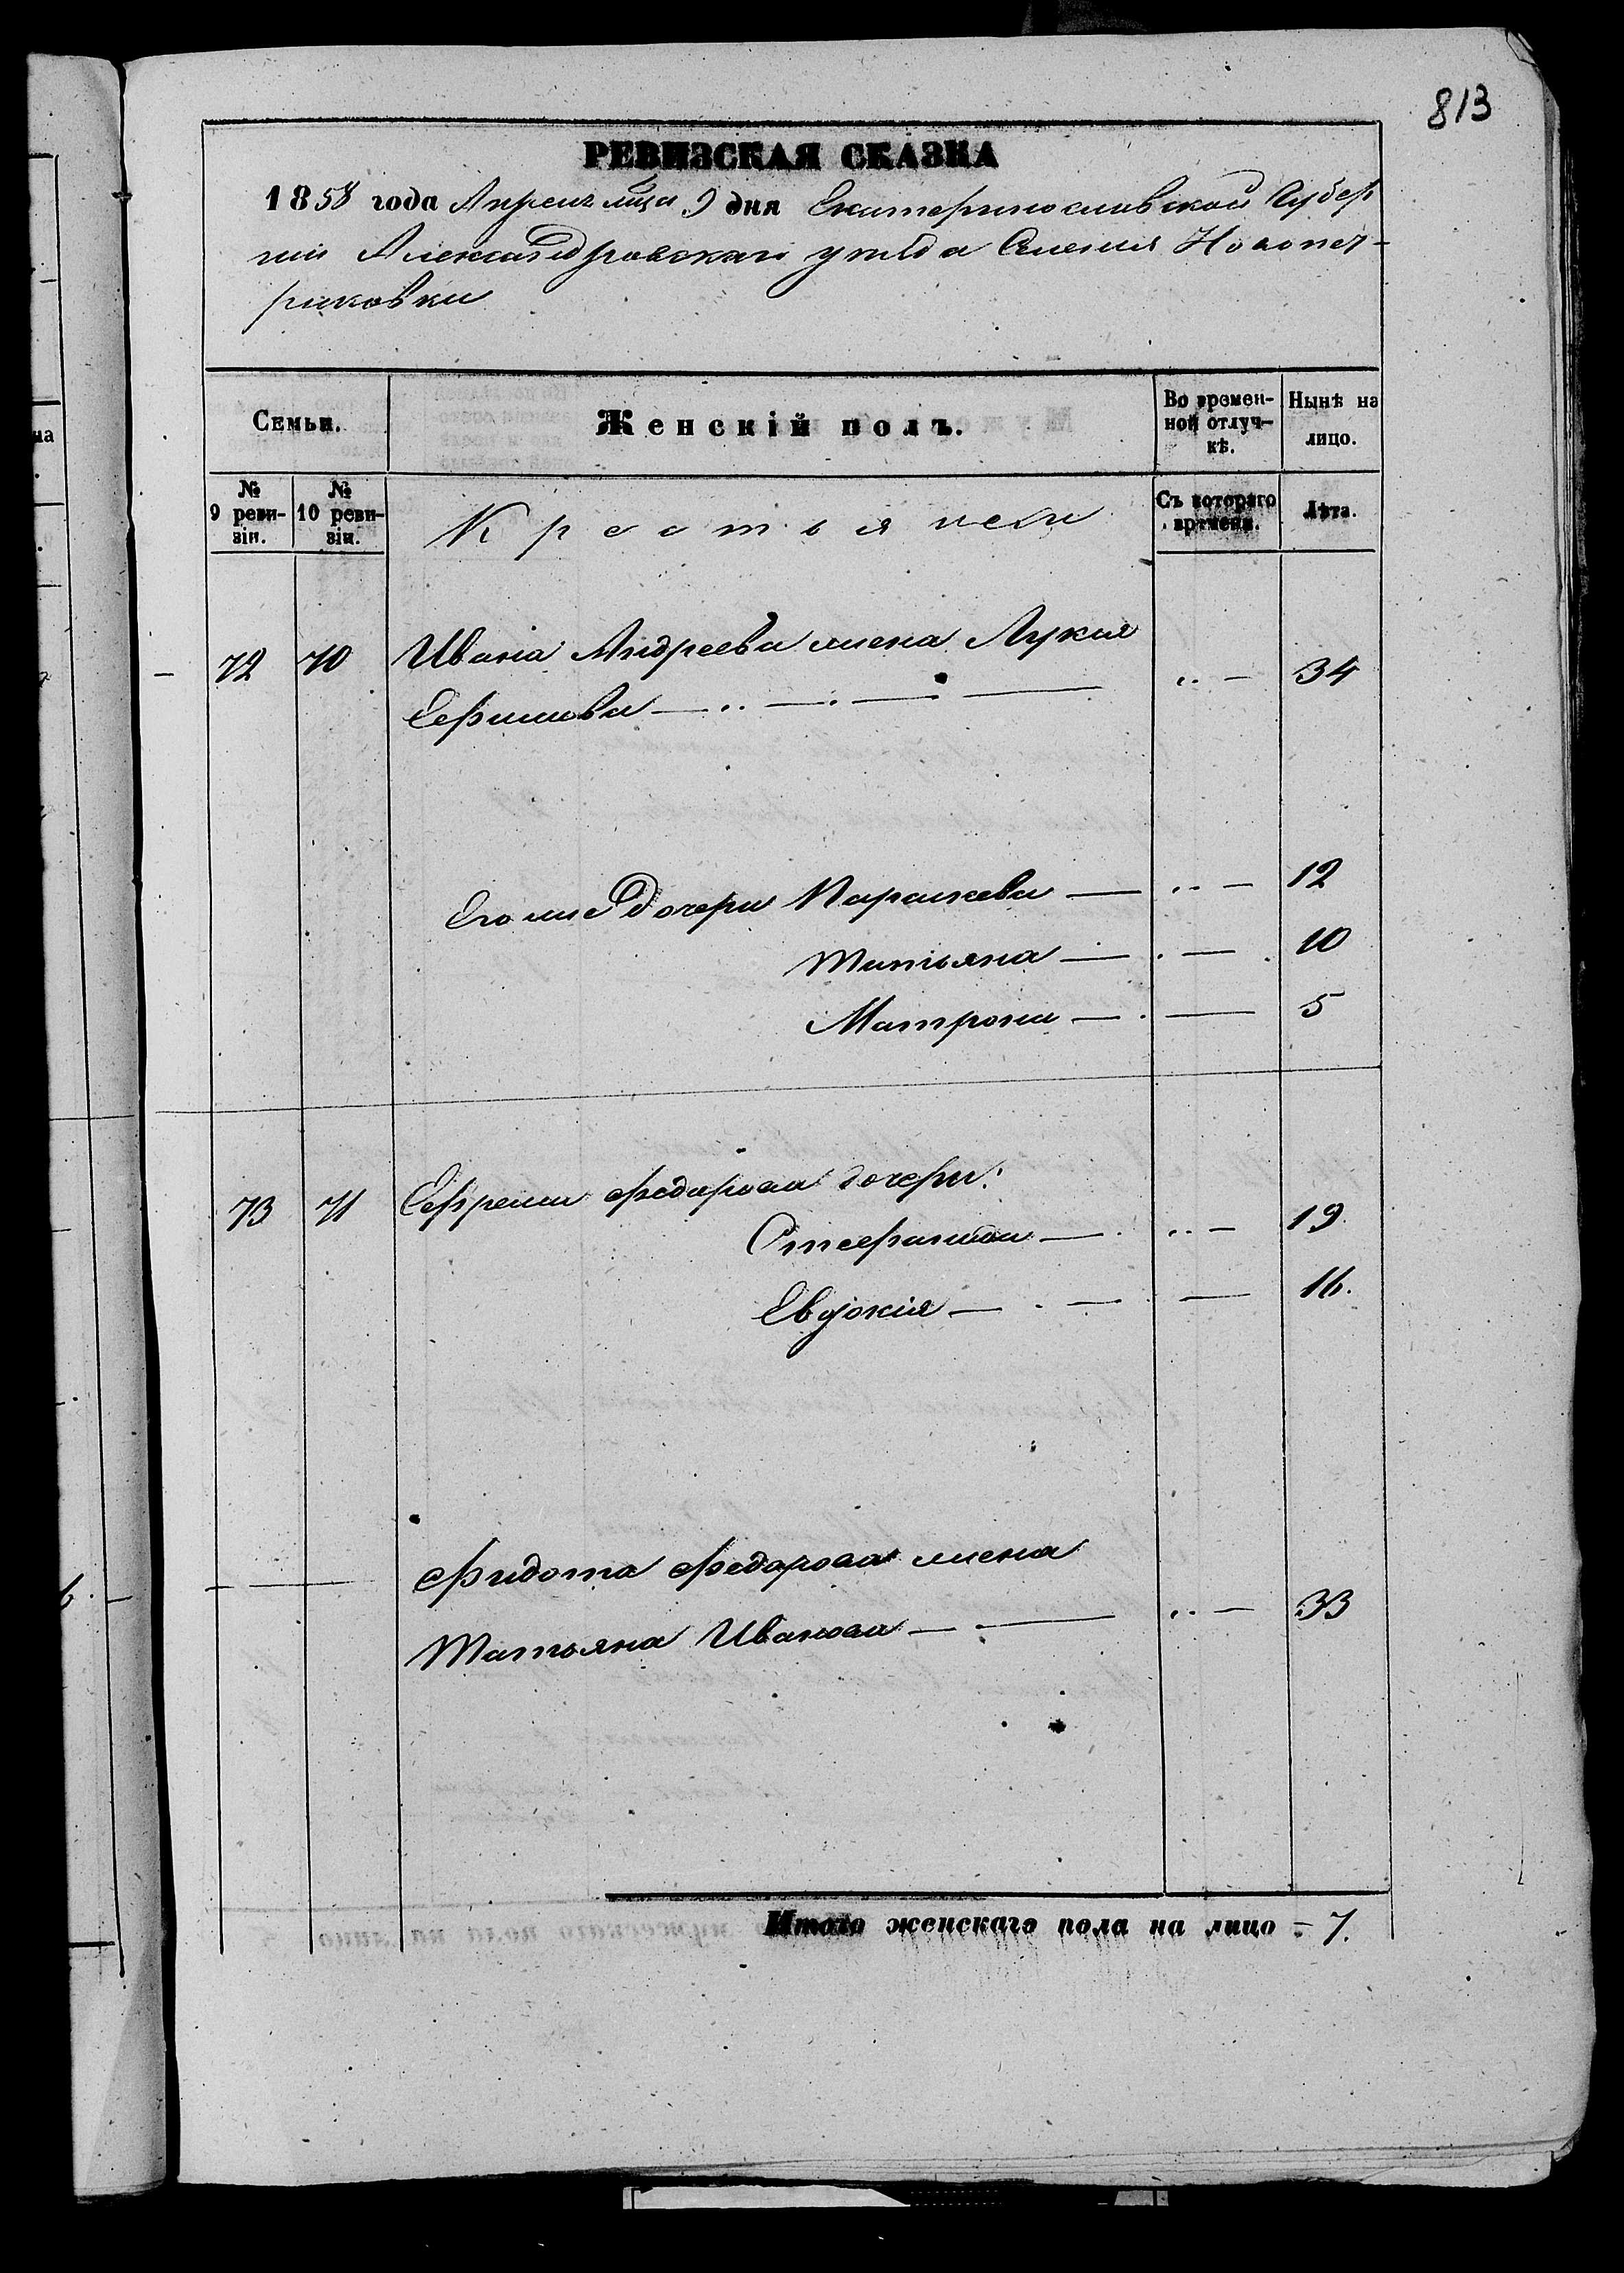 813
РЕВИЗСКАЯ СКАЗКА
1858 года Апреля мца 9 дня Екатеринославской Губер
нии Александровскаго уѣзда Селения Новопет-
риковки
Семьи.
Женскій полъ.
Во времен-
ной отлуч-
кѣ.
Нынѣ на
лицо.
№
9 реви-
зіи.
№
10 реви-
зіи.
Крестьянеъ
Съ котораго
времени.
Лѣта.
72 70 Ивана Андреева жена Лукия
Ефимова — „ — . — — „ — 34
Его же дочери Парашкева — „ — 12
Татьяна — . — . 10
Матрона — . — 5
73 71 Ефрема Федорова дочери:
Стефанида — . „ — 19.
Евдокія — . — — 16.
Фидота Федорова жена
Татьяна Иванова — — „ — 33
Итого женскаго пола на лицо – 7.